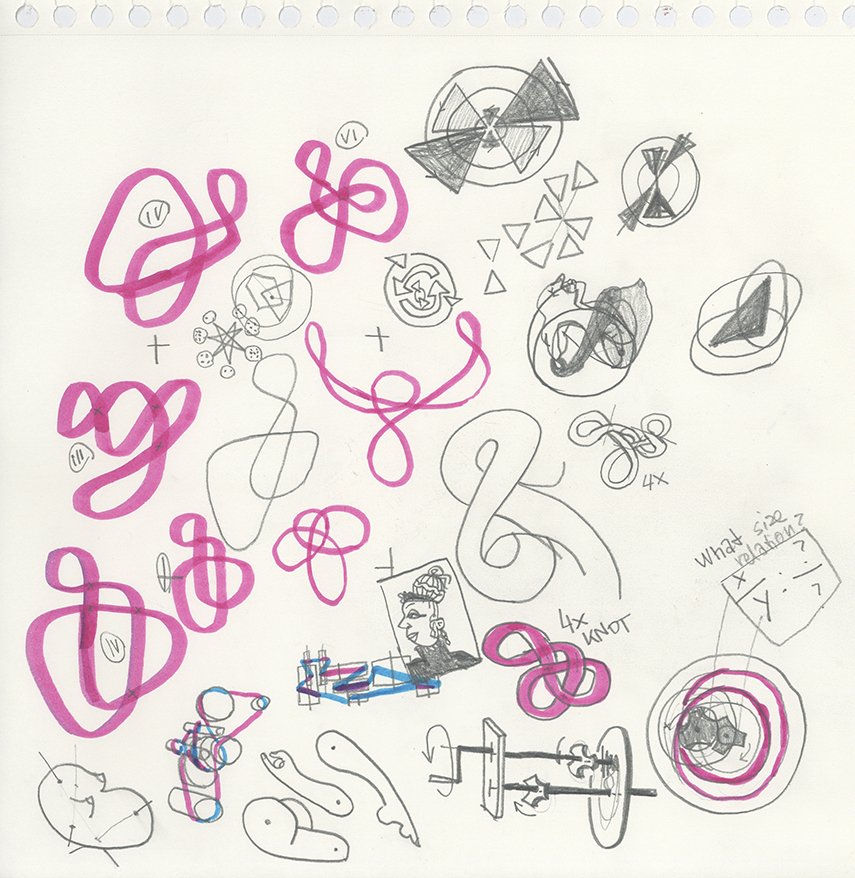 VI
IV
III
4X
What size
relation?
X
?
Y
?
IV
4X
KNOT